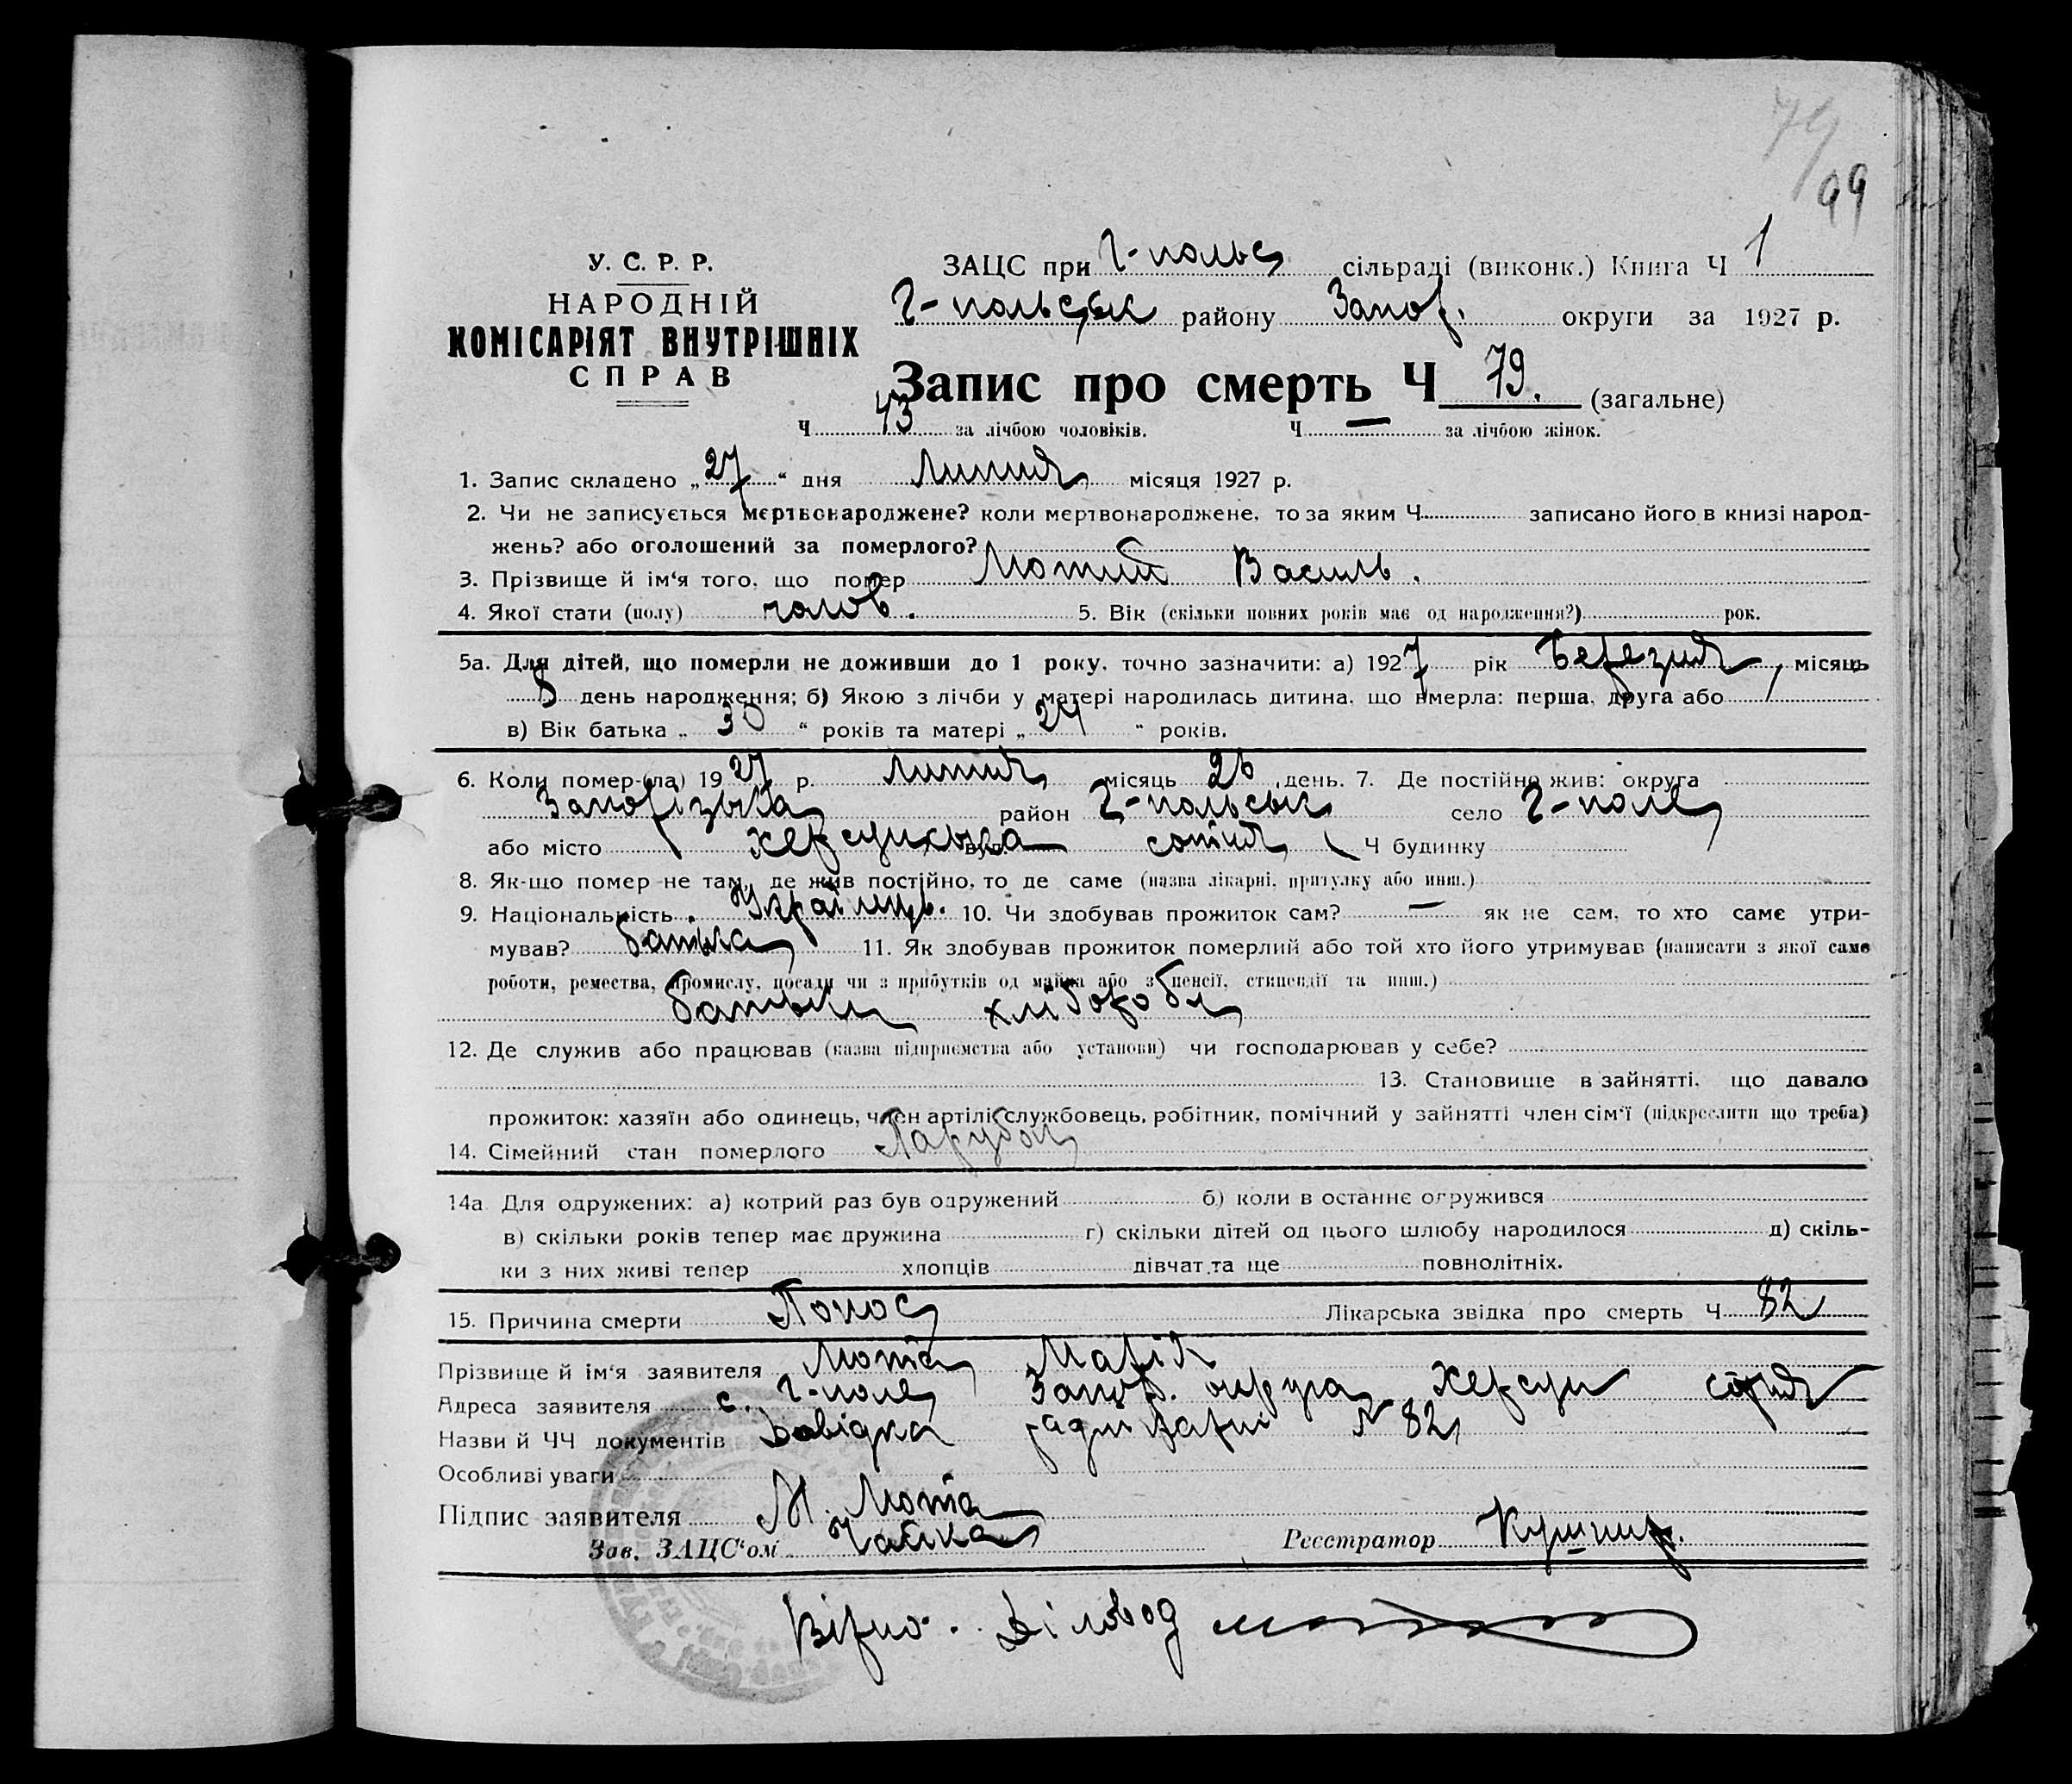 79/
99
У. С. Р. Р.
НАРОДНІЙ
КОМІСАРІЯТ ВНУТРІШНІХ
СПРАВ
ЗАЦС при Г-польс сільраді (виконк.) Книга Ч 1
Г-польськ району Запор. округи за 1927 р.
Запис про смерть Ч 79. (загальне)
Ч 43 за лічбою чоловіків. Ч — за лічбою жінок.
1. Запис складено „27“ дня Липня місяця 1927 р.
2. Чи не записується мертвонароджене? коли мертвонароджене, то за яким Ч записано його в книзі народ-
жень? або оголошений за померлого?
3. Прізвище й ім‘я того, що помер Мотий Василь.
4. Якої стати (полу) чолов. 5. Вік (скільки повних років має од народження?) рок.
5а. Для дітей, що померли не доживши до 1 року, точно зазначити: а) 1927 рік Березня, місяць
8 день народження; б) Якою з лічби у матері народилась дитина, що вмерла: перша, друга або
в) Вік батька „30“ років та матері „24“ років.
6. Коли помер-(ла) 1927 р. Липня місяць 26 день. 7. Де постійно жив: округа
Запорізька район Г-польськ село Г-поле
або місто Херсунська вул. сотня Ч будинку
8. Як-що помер не там, де жив постійно, то де саме (назва лікарні, притулку або инш.)
9. Національність. Українць. 10. Чи здобував прожиток сам? — як не сам, то хто саме утри-
мував? батька 11. Як здобував прожиток померлий або той хто його утримував (написати з якої саме
роботи, ремества, промислу, посади чи з прибутків од майна або з пенсії, стипендії та инш.)
батьки хлібороби
12. Де служив або працював (назва підприємства або установи) чи господарював у себе?
13. Становище в зайнятті, що давало
прожиток: хазяїн або одинець, член артілі, службовець, робітник, помічний у зайнятті член сім‘ї (підкреслити що треба)
14. Сімейний стан померлого Парубок
14а. Для одружених: а) котрий раз був одружений б) коли в останнє одружився
в) скільки років тепер має дружина г) скільки дітей од цього шлюбу народилося д) скіль-
ки з них живі тепер хлопців дівчат та ще повнолітніх.
15. Причина смерти Понос Лікарська звідка про смерть Ч 82
Прізвище й ім‘я заявителя Мотий Марія
Адреса заявителя с. Г-поле Запор. округа Херсун сотня
Назви й ЧЧ документів Довідка № 82
Особливі уваги
Підпис заявителя М. Мотий
Зав. ЗАЦС‘ом Чайка Реєстратор Кушнир.
Вірно. Діловод